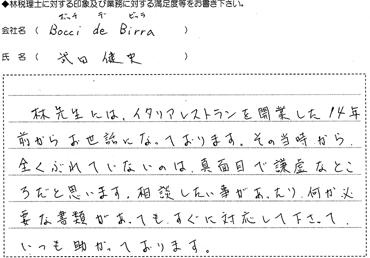 ◆林税理士に対する印象及び業務に対する満足度等をお書き下さい。
ボッチ デ ビッラ
会社名 ( Bocci de Birra )
氏 名 ( 武田 俊史 )
林先生には、イタリアレストランを開業した14年
前からお世話になっております。その当時から
全くぶれていないのは、真面目で謙虚なとこ
ろだと思います。相談したい事があったり、何か必
要な書類があっても、すぐに対応して下さって、
いつも助かっております。